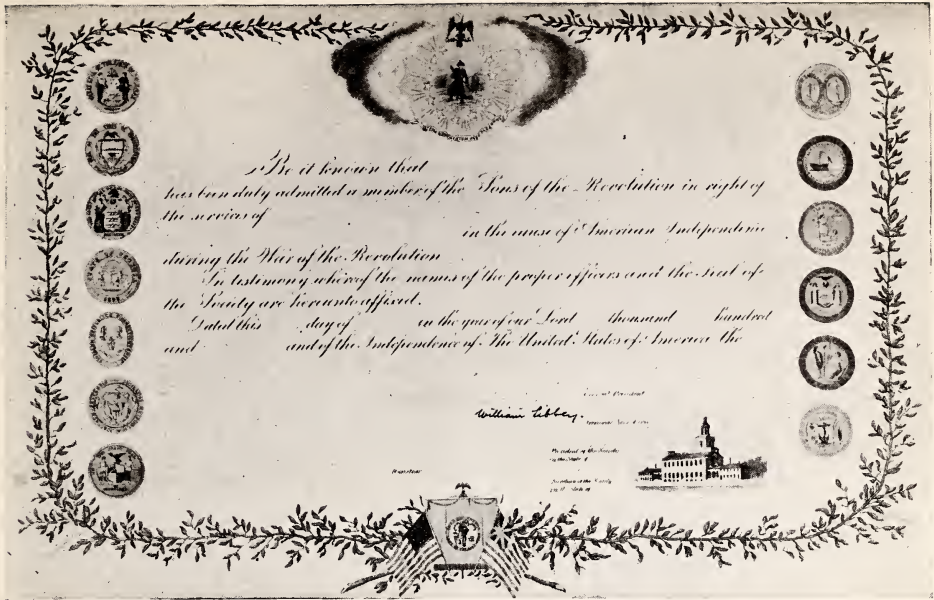 Be it known that
has been duly admitted a member of the Sons of the Revolution in right of
the services of
in the cause of American Independence
during the War of the Revolution
In testimony whereof the names of the proper officers and the seal of
the Society are hereunto affixed.
Dated this day of in the year of our Lord thousand hundred
and and of the Independence of The United States of America the
General President
William Libbey.
General Secretary
President of the Society
in the State of
Registrar
Secretary of the Society
in the State of